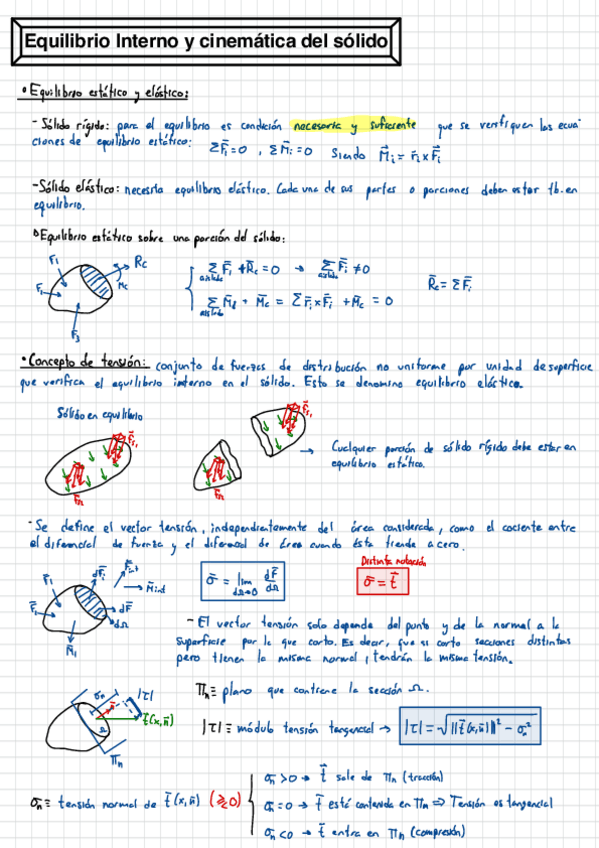 Equilibrio Interno y cinemática del sólido
• Equilibrio estático y elástico:
- Sólido rígido: para el equilibrio es condición necesaria y suficiente que se verifiquen las ecua
ciones de equilibrio estático: ΣF̄i = 0 , ΣM̄i = 0 siendo M̄i = r̄i x F̄i
- Sólido elástico: necesita equilibrio elástico. Cada una de sus partes o porciones deben estar tb. en
equilibrio.
Equilibrio estático sobre una porción del sólido:
F1 Rc
Fi Mc
F3
Σ F̄i + R̄c = 0 → Σ F̄i ≠ 0
aislado aislado
R̄c = Σ F̄i
Σ M̄i + M̄c = Σ r̄i x F̄i + M̄c = 0
aislado
• Concepto de tensión: conjunto de fuerzas de distribución no uniforme por unidad de superficie
que verifica el equilibrio interno en el sólido. Esto se denomina equilibrio elástico.
Sólido en equilibrio
→ Cualquier porción de sólido rígido debe estar en
equilibrio estático.
- Se define el vector tensión, independientemente del área considerada, como el cociente entre
el diferencial de fuerza y el diferencial de área cuando ésta tiende a cero.
Distinta notación
σ̄ = lim dF̄/dΩ
dΩ→0
σ̄ = t̄
F̄1 dF̄i F̄int
M̄int
F̄i dF̄
dΩ
- El vector tensión solo depende del punto y de la normal a la
superficie por la que corto. Es decir, que si corto secciones distintas
pero tienen la misma normal, tendrán la misma tensión.
Πn ≡ plano que contiene la sección Ω.
σn |τ|
n̄
t̄(x,n̄)
Ω
Πn
|τ| ≡ módulo tensión tangencial → |τ| = √(||t̄(x,n̄)||² - σn²)
σn > 0 → t̄ sale de Πn (tracción)
σn ≡ tensión normal de t̄(x,n̄) (⋛0)
σn = 0 → t̄ está contenida en Πn ⇒ Tensión es tangencial
σn < 0 → t̄ entra en Πn (compresión)